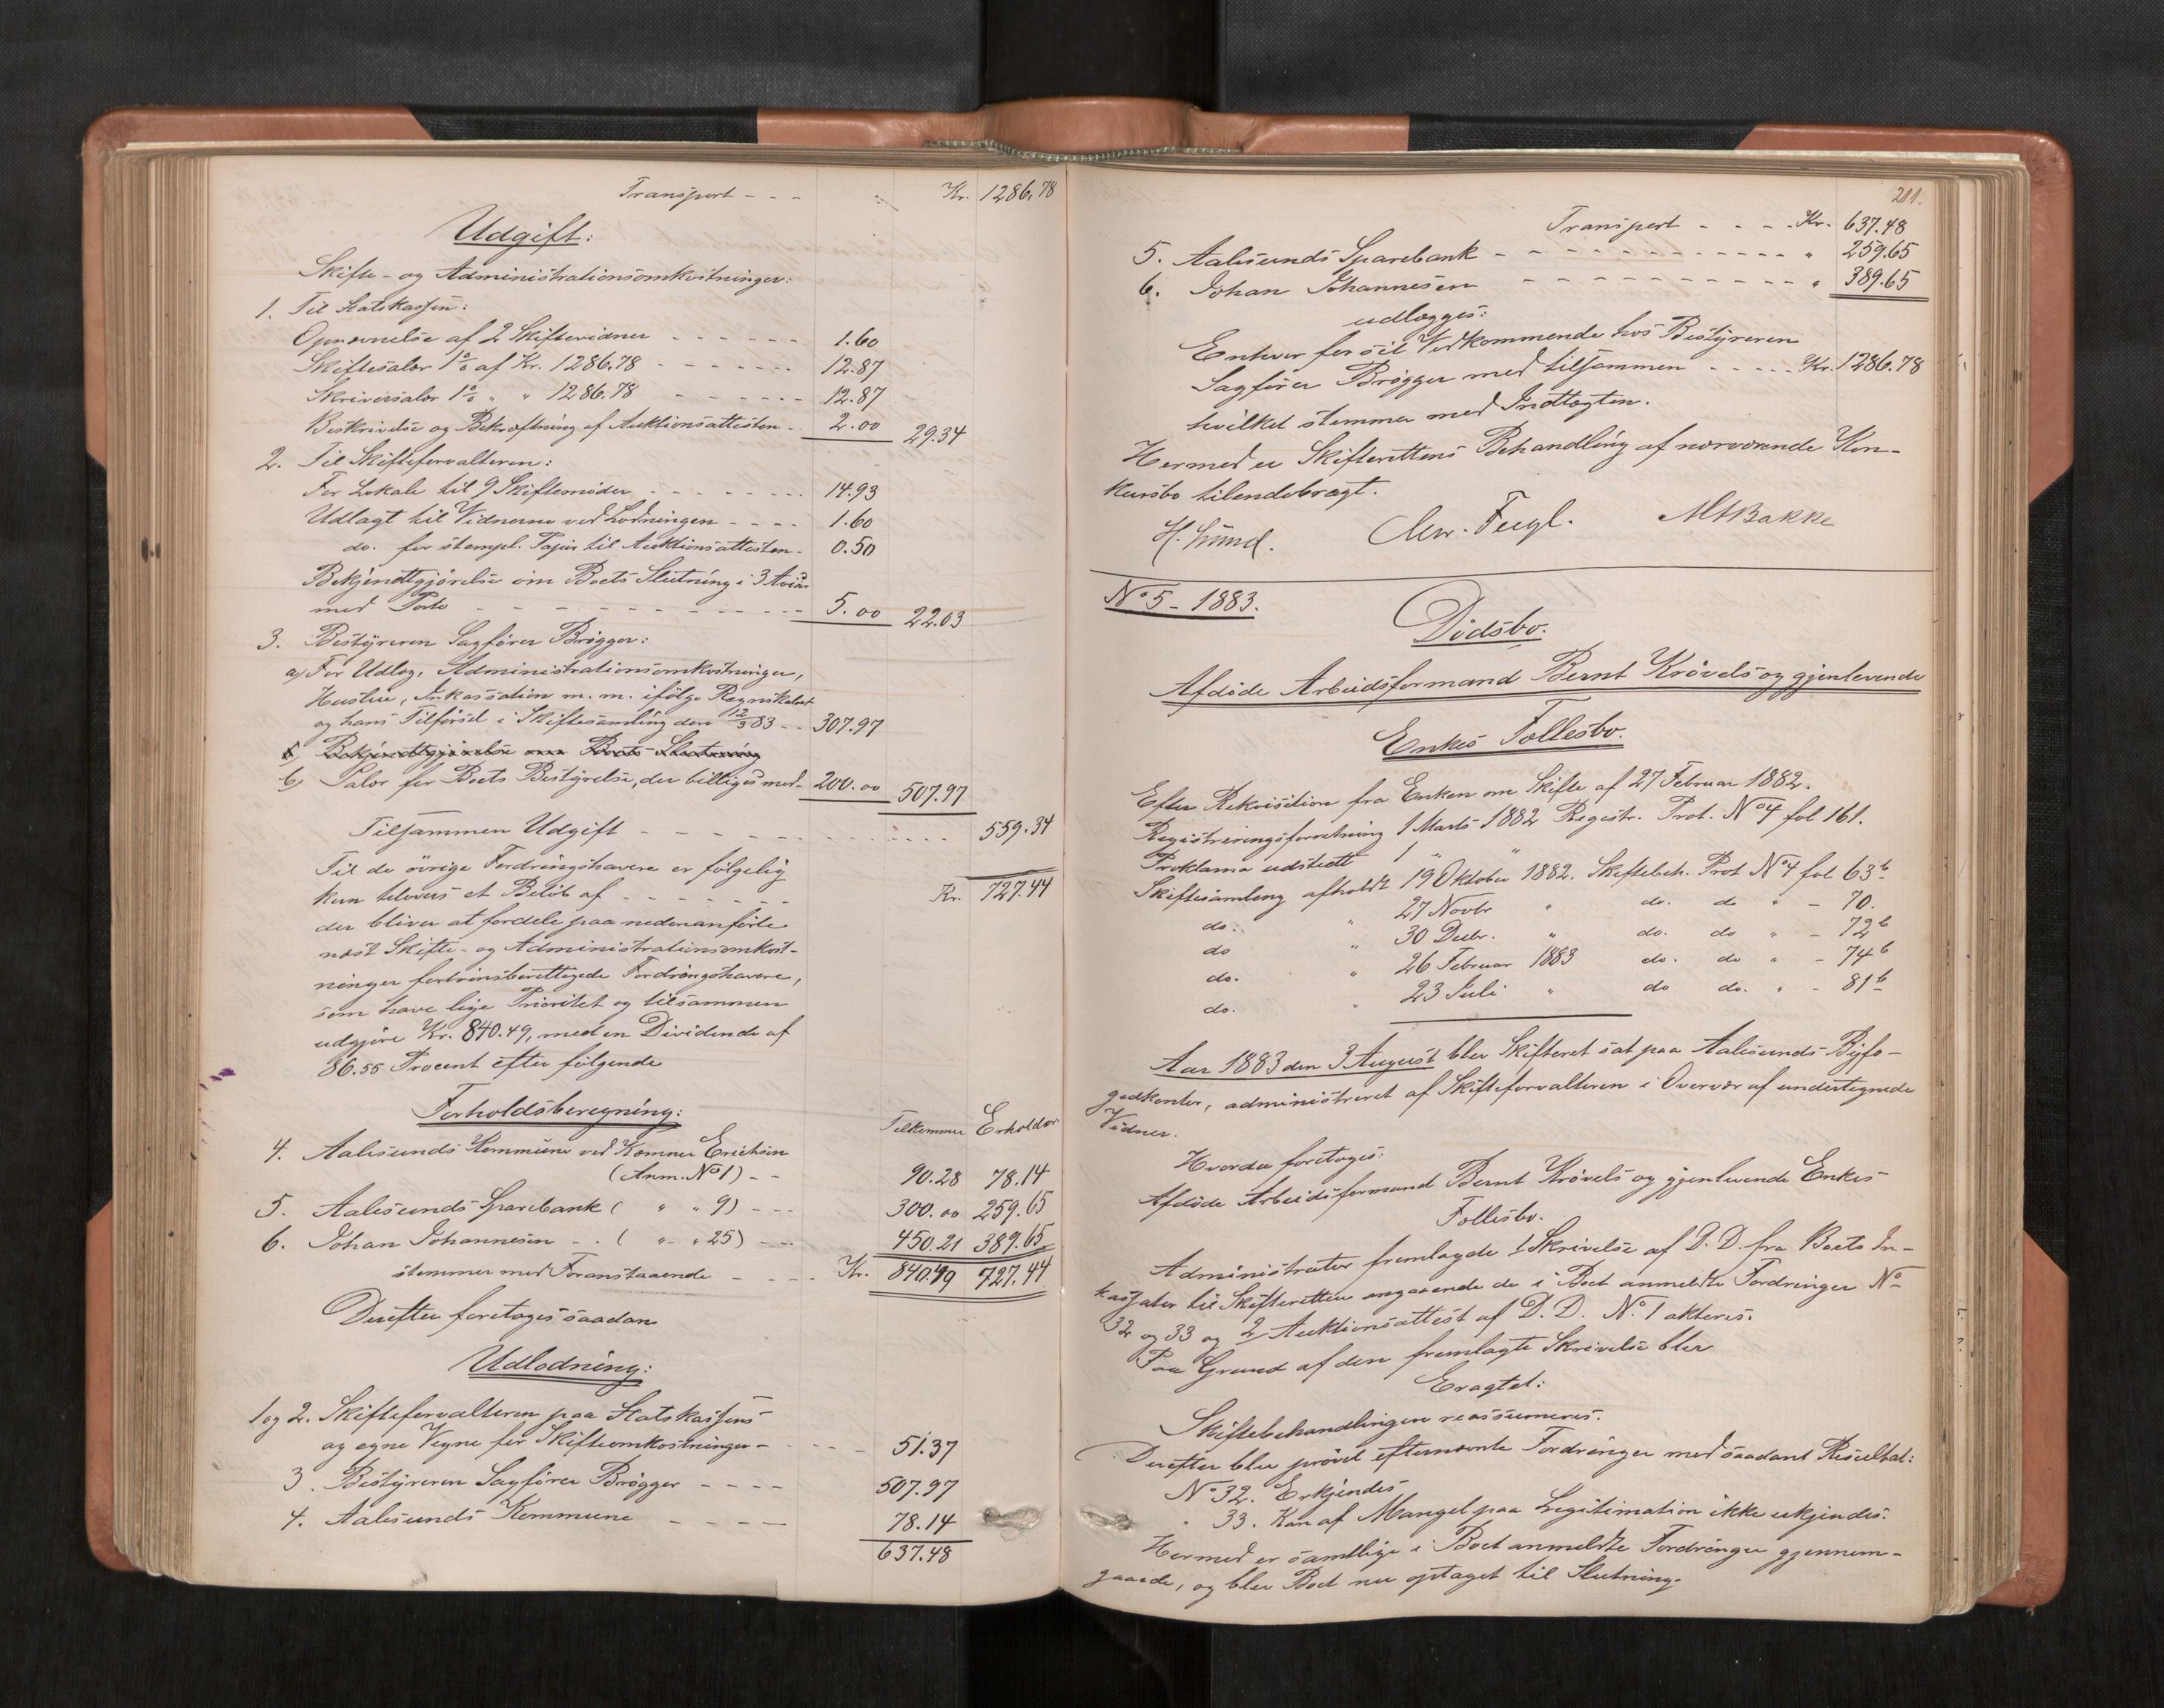 Transport - - - Kr. 1286.78
Udgift:
Skifte- og Administrationsomkostninger:
1. Til Statskassen:
Opnævnelse af 2 Skiftevidner - - - - - - 1.60
Skiftesalær 1% af Kr. 1286.78 - - - - - - - 12.87
Skriversalær 1% " " 1286.78 - - - - - - 12.87
Beskrivelse og Bekræftning af Auktionsattesten - 2.00 29.34
2. Til Skifteforvalteren:
For Lokale til 9 Skiftemöder - - - - - - - 14.93
Udlagt til Vidnerne ved Lodningen - - - - 1.60
do. for stempl. Papir til Auktionsattesten - 0.50
Bekjendtgjörelse om Boets Slutning i 3 Aviser
med Porto - - - - - - - - - - - 5.00 22.03
3. Bestyreren Sagförer Brögger:
a) For Udlæg, Administrationsomkostninger,
Husleie, Inkassation m. m. ifölge Regnskabet
og hans Tilförsel i Skiftesamling den 12/3 83 - - 307.97
b) Bekjendtgjörelse om Boets Slutning
b) Salær for Boets Bestyrelse, der billiges med - 200.00 507.97
Tilsammen Udgift - - - - - - - - - - 559.34
Til de övrige Fordringshavere er fölgelig
kun tilovers et Belöb af - - - - - - - Kr. 727.44
der bliver at fordele paa nedenanförte
næst Skifte- og Administrationsomkost-
ninger fortrinsberettigede Fordringshavere,
som have lige Prioritet og tilsammen
udgjöre Kr. 840.49, med en Dividende af
86.55 Procent efter fölgende
Forholdsberegning:
Tilkommer Erholder
4. Aalesunds Kommune ved Kæmner Erichsen
(Anm. No 1) - - 90.28 78.14
5. Aalesunds Sparebank ( " " 9) - - - 300.00 259.65
6. Johan Johannesen - - ( " " 25) - - - 450.21 389.65
stemmer med Foranstaaende - - - - Kr. 840.49 727.44
Derefter foretoges saadan
Udlodning:
1 og 2. Skifteforvalteren paa Statskassens
og egne Vegne for Skifteomkostninger - - - - - 51.37
3. Bestyreren Sagförer Brögger - - - - 507.97
4. Aalesunds Kommune - - - - - 78.14
637.48
211.
Transport - - - - Kr. 637.48
5. Aalesunds Sparebank - - - - - - - - - - - - " 259.65
6. Johan Johannesen - - - - - - - - - - - " 389.65
udlægges:
Enhver for sit Vedkommende hos Bestyreren
Sagförer Brögger med tilsammen - - - - - Kr. 1286.78
hvilket stemmer med Indtægten.
Hermed er Skifterettens Behandling af nærværende Kon-
kursbo tilendebragt.
H. Lund. Chr. Fugl. MABakke
No 5 - 1883.
Dödsbo.
Afdöde Arbeidsformand Bernt Krövels og gjenlevende
Enkes Fællesbo.
Efter Rekvisition fra Enken om Skifte af 27 Februar 1882.
Registreringsforretning 1 Marts 1882 Registr. Prot. No 4 fol 161.
Proklama udstedt 1 " "
Skiftesamling afholdt 19 Oktober 1882. Skiftebeh. Prot No 4 fol 63b
do. " 27 Novbr " do. do " - 70.
do " 30 Decbr. " do. do " - 72b
do. " 26 Februar 1883 do. do " - 74b
do. " 23 Juli " do do. " - 81b
Aar 1883 den 3 August blev Skifteret sat paa Aalesunds Byfo-
gedkontor, administreret af Skifteforvalteren i Overvær af undertegnede
Vidner.
Hvorda foretoges:
Afdöde Arbeidsformand Bernt Krövels og gjenlevende Enkes
Fællesbo.
Administrator fremlagde 1 Skrivelse af D. D. fra Boets In-
kassator til Skifteretten angaaende de i Boet anmeldte Fordringer No
32 og 33 og 2 Auktionsattest af D. D. No. 1 akteres.
Paa Grund af den fremlagte Skrivelse blev
Eragtet:
Skiftebehandlingen reassumeres.
Derefter blev prövet efternævnte Fordringer med saadant Resultat:
No 32. Erkjendes
" 33. Kan af Mangel paa Legitimation ikke erkjendes.
Hermed er samtlige i Boet anmeldte Fordringer gjennem-
gaaede, og blev Boet nu optaget til Slutning.